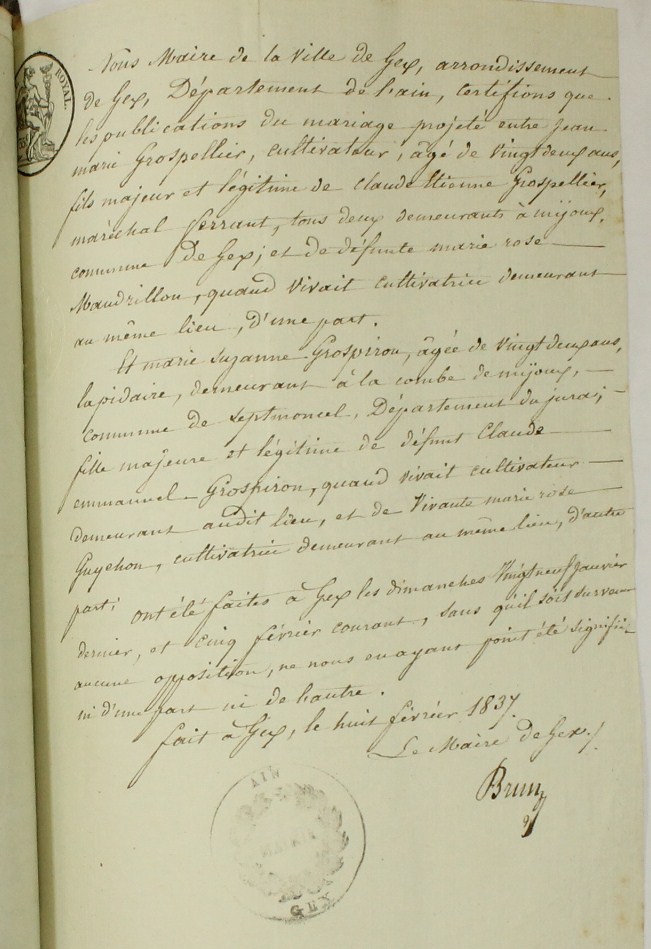 ROYAL.
Nous Maire de la Ville de Gex, arrondissement
de Gex, Département de l'ain, certifions que
les publications du mariage projeté entre Jean
marie Grospellier, cultivateur, âgé de vingt deux ans,
fils majeur et légitime de Claude Etienne Grospellier,
maréchal ferrant, tous deux demeurants à mijoux,
commune de Gex; et de défunte marie rose
Maudrillon, quand vivait cultivatrice demeurant
au même lieu, d'une part.
Et marie Suzanne Grospiron, âgée de vingt deux ans,
lapidaire, demeurant à la combe de mijoux,
commune de Septmoncel, Département du jura;
fille majeure et légitime de défunt Claude
emmanuel Grospiron, quand vivait cultivateur
demeurant audit lieu, et de Vivante marie rose
Guychon, cultivatrice demeurant au même lieu, d'autre
part;
ont été faites à Gex les dimanches vingt neuf janvier
dernier, et cinq février courant, sans qu'il soit survenu
aucune opposition, ne nous en ayant point été signifié
ni d'une part ni de l'autre.
fait à Gex, le huit février 1837.
Le Maire de Gex,
Brun
AIN
GEX